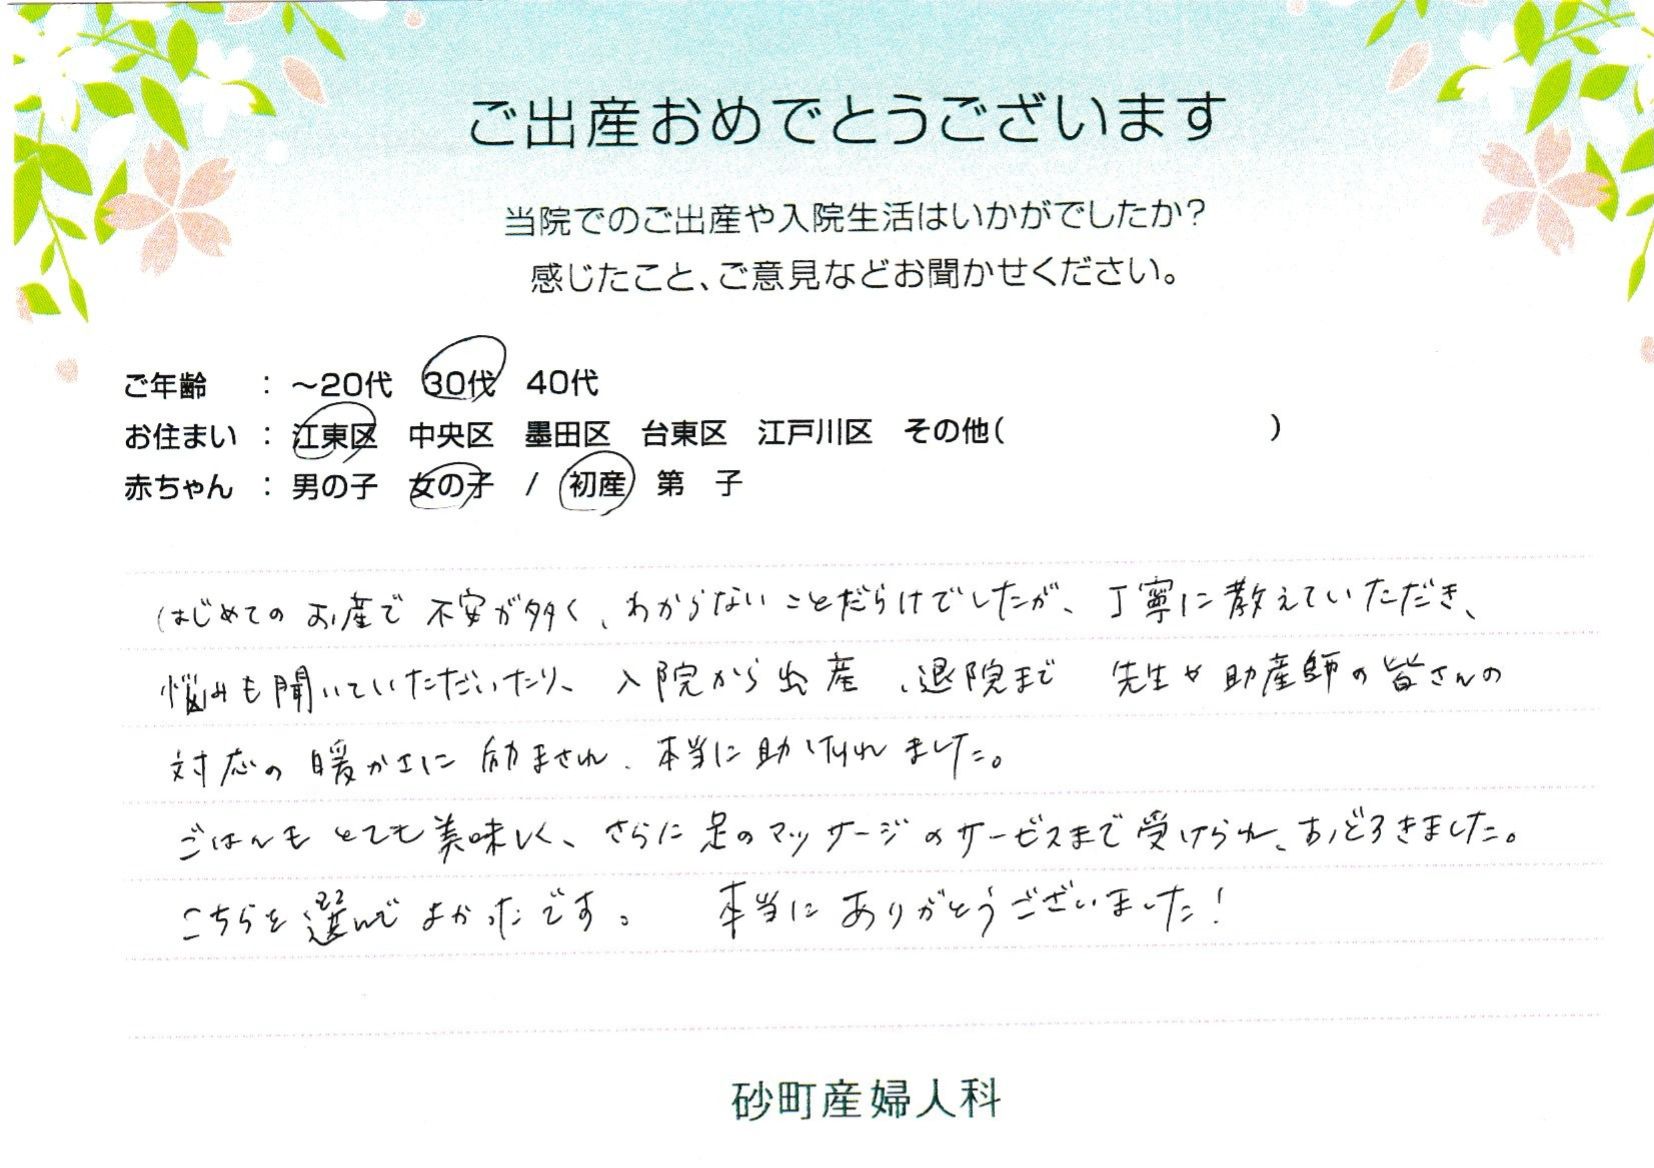 ご出産おめでとうございます
当院でのご出産や入院生活はいかがでしたか?
感じたこと、ご意見などお聞かせください。
ご年齢 : ～20代 30代 40代
お住まい : 江東区 中央区 墨田区 台東区 江戸川区 その他( )
赤ちゃん : 男の子 女の子 / 初産 第 子
はじめてのお産で不安が多く、わからないことだらけでしたが、丁寧に教えていただき、
悩みも聞いていただいたり、入院から出産、退院まで 先生や助産師の皆さんの
対応の暖かさに励まされ、本当に助けられました。
ごはんもとても美味しく、さらに足のマッサージのサービスまで受けられ、おどろきました。
こちらを選んでよかったです。 本当にありがとうございました!
砂町産婦人科